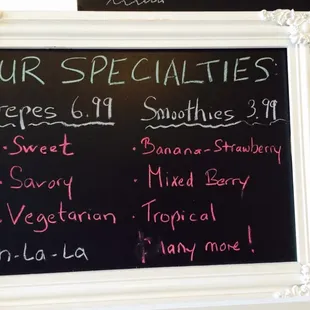 UR SPECIALTIES:
repes 6.99 Smoothies 3.99
• Sweet • Banana-Strawberry
• Savory • Mixed Berry
• Vegetarian • Tropical
n-La-La Many more!